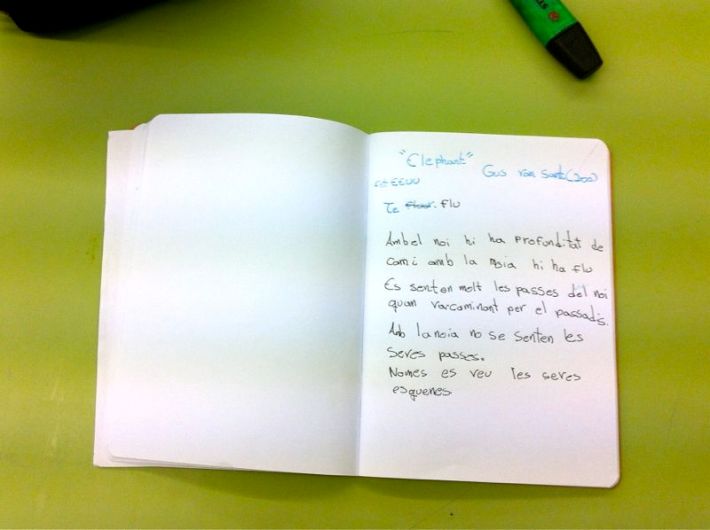 "Elephant" Gus van Sant (200)
EEUU
Te flu
Ambel noi hi ha profunditat de
camí amb la noia hi ha flu
Es senten molt les passes del noi
quan va caminant per el passadís.
Amb la noia no se senten les
seves passes.
Nomes es veu les seves
esquenes